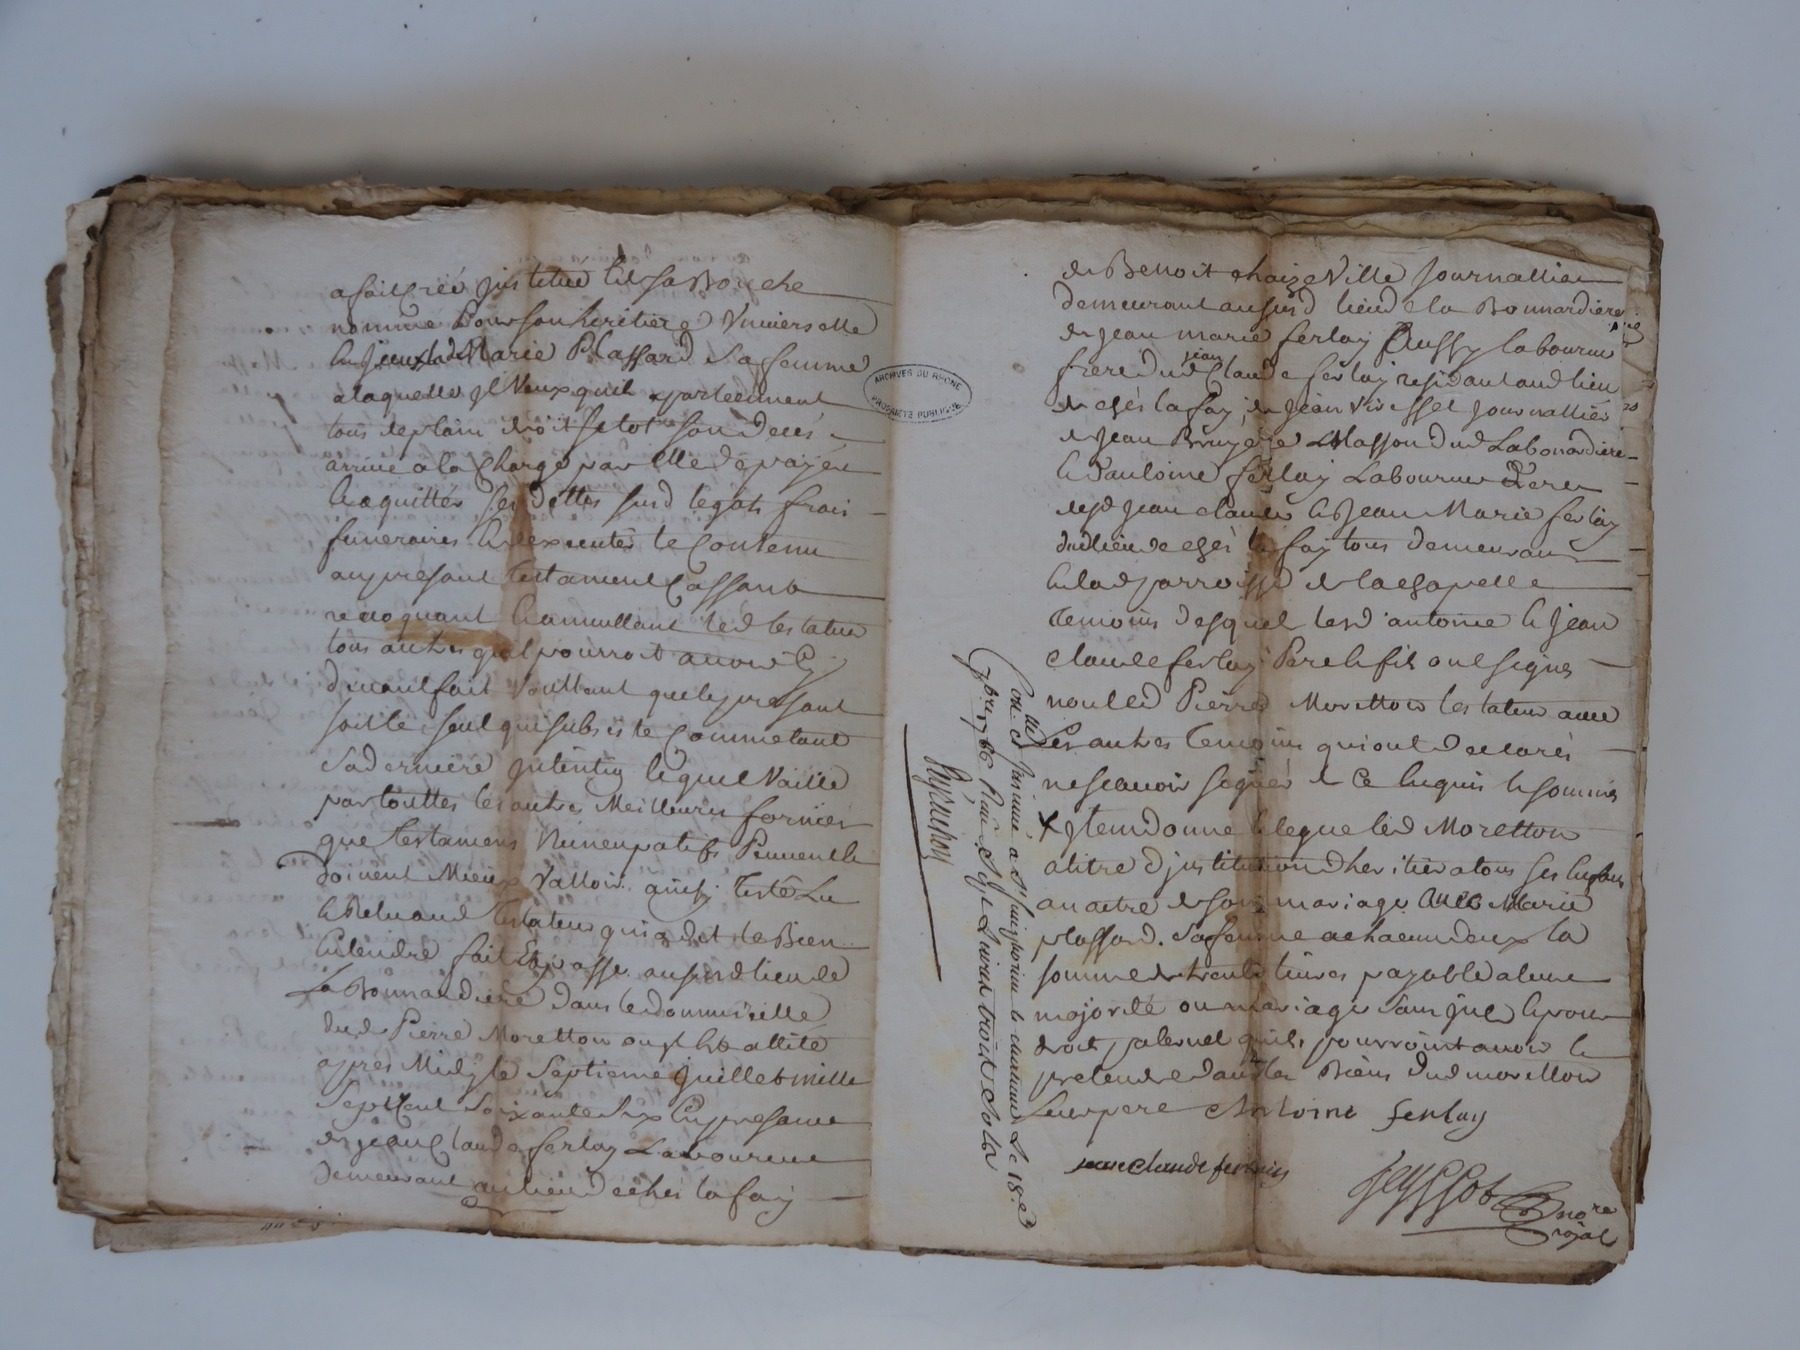 a fait creé justitue et de sa Bouche
nommé Pour son heritiere Universelle
Marie Plassard sa femme
a laquelle jl Veux quil apartiennent
tous de plain droit sitot son decés
arrivé a la Charge par elle de payer
et aquitter ses dettes susd legats frais
funeraires et dexecuter le Contenu
au presant testament Cassant
revoquant et annullant led testateur
tous autres quil pourroit avoir Cy
devant fait Voullant que le presant
soit le seul qui subsiste Comme etant
sa derniere jntention lequel Vaille
par touttes les autres Meilleures formes
que testamens Nuncupatifs Peuvent et
doivent Mieux Valloir ainsy testé Lu
et Releu aud testateur qui a dit le Bien
Entendre fait et passé au susd lieu de
La Bonnardiere dans le dommicille
dud Pierre Moretton ou jl est allité
apres Midy le Septieme Juillet mille
Sept Cent Soixante Six En presance
de jean Claude ferlay Laboureur
demeurant au lieu de chés la fay
de Benoit chaizeVille Journallier
demeurant au susd lieu de la Bonnardiere
de jean marie ferlay Aussy laboureur
frere dud jean Claude ferlay residant aud lieu
de chés la fay, de jean Vivessel journallier
de jean Bruyere Masson dud Labonardiere
et d'antoine ferlay Laboureur Pere
desd jean claude et Jean Marie ferlay
dud lieu de chés la fay tous demeurant
en lad parroisse de la chapelle
temoins desquels lesd antoine et jean
claude ferlay Pere et fils ont signés
non led Pierre Moretton testateur avec
Les autres temoins qui ont declarés
ne scavoir signer de Ce enquis et sommés
x jtem donne et legue led Moretton
a titre d justitution dheritier a tous ses enfans
a naitre de son mariage avec Marie
plassard. sa femme a chacun deux la
somme de trente livres payable a leur
majorité ou mariage sans jnt et pour
droits paternel quils pourroint avoir et
pretendre dans les Biens dud moretton
Leur pere Antoine ferlay
jean claude ferlay
feyssot nore
royal
Con.llé et jnsinué a St Simphorien le chateau Le 18.e
7bre 1766 Reçu Seize Livres trois Sols
ARCHIVES DU RHONE
PROPRIÉTÉ PUBLIQUE